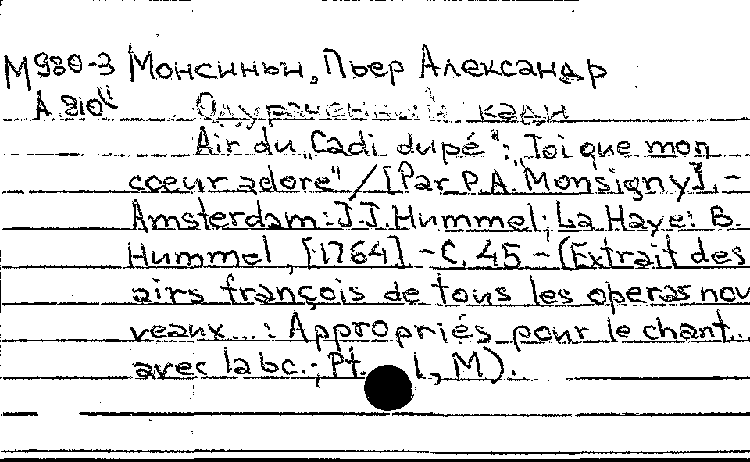 М980-3 Монсиньи, Пьер Александр
А 810" Одураченный кади
Air du „Cadi dupé": „Toi que mon
coeur adore" / [Par P.A. Monsigny]. -
Amsterdam: J.J. Hummel; La Haye: B.
Hummel, [1764] - С. 45 - (Extrait des
airs françois de tous les operas nou
veaux...: Appropriés pour le chant...
avec la bc.; Pt. 1, M).